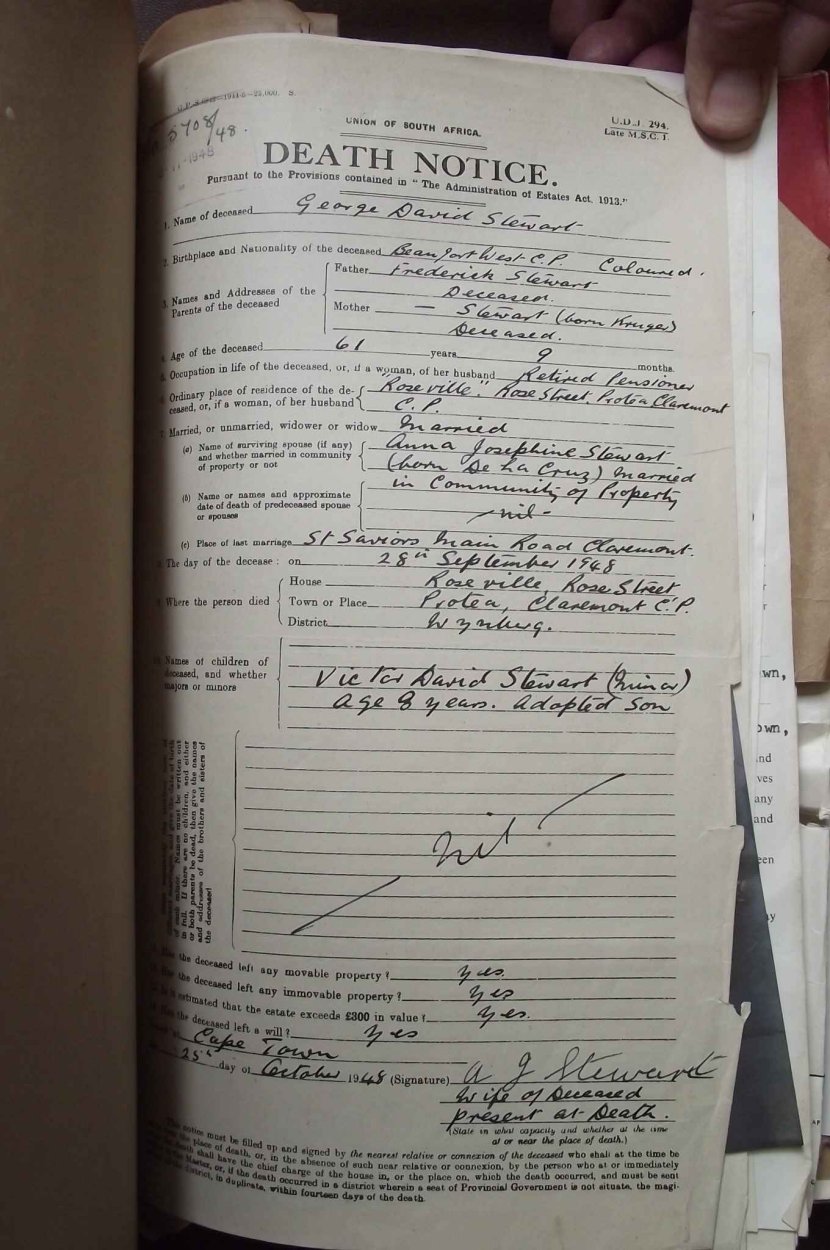 U.D.J. 294.
Late M.S.C. 1.
5708/48.
1948
UNION OF SOUTH AFRICA.
DEATH NOTICE.
Pursuant to the Provisions contained in "The Administration of Estates Act, 1913."
1. Name of deceased George David Stewart
2. Birthplace and Nationality of the deceased Beaufort West C.P. Coloured.
3. Names and Addresses of the Parents of the deceased
Father Frederick Stewart
Deceased.
Mother — Stewart (born Kruger)
Deceased.
Age of the deceased 61 years 9 months.
Occupation in life of the deceased, or, if a woman, of her husband Retired Pensioner
Ordinary place of residence of the de- "Roseville". Rose Street, Protea Claremont
ceased, or, if a woman, of her husband C.P.
7. Married, or unmarried, widower or widow Married
(a) Name of surviving spouse (if any) Anna Josephine Stewart
and whether married in community (born De La Cruz) Married
of property or not
in Community of Property
(b) Name or names and approximate
date of death of predeceased spouse nil
or spouses
(c) Place of last marriage St Saviors Main Road Claremont.
The day of the decease: on 28th September 1948
Where the person died
House Roseville, Rose Street,
Town or Place Protea, Claremont C.P.
District Wynberg.
Names of children of
deceased, and whether Victor David Stewart (Minor)
majors or minors age 8 years. adopted son
in full. If there are no children, and either
or both parents be dead, then give the names
and addresses of the brothers and sisters of
the deceased
nil
the deceased left any movable property? yes.
the deceased left any immovable property? yes
estimated that the estate exceeds £300 in value? yes.
the deceased left a will? yes
Cape Town
25th day of October 1948 (Signature) A J Stewart
Wife of Deceased
present at Death.
(State in what capacity and whether at the time
at or near the place of death.)
This notice must be filled up and signed by the nearest relative or connexion of the deceased who shall at the time be
the place of death, or, in the absence of such near relative or connexion, by the person who at or immediately
death shall have the chief charge of the house in, or the place on, which the death occurred, and must be sent
Master, or, if the death occurred in a district wherein a seat of Provincial Government is not situate, the magi-
district, in duplicate, within fourteen days of the death.
wn,
own,
nd
ves
any
and
een